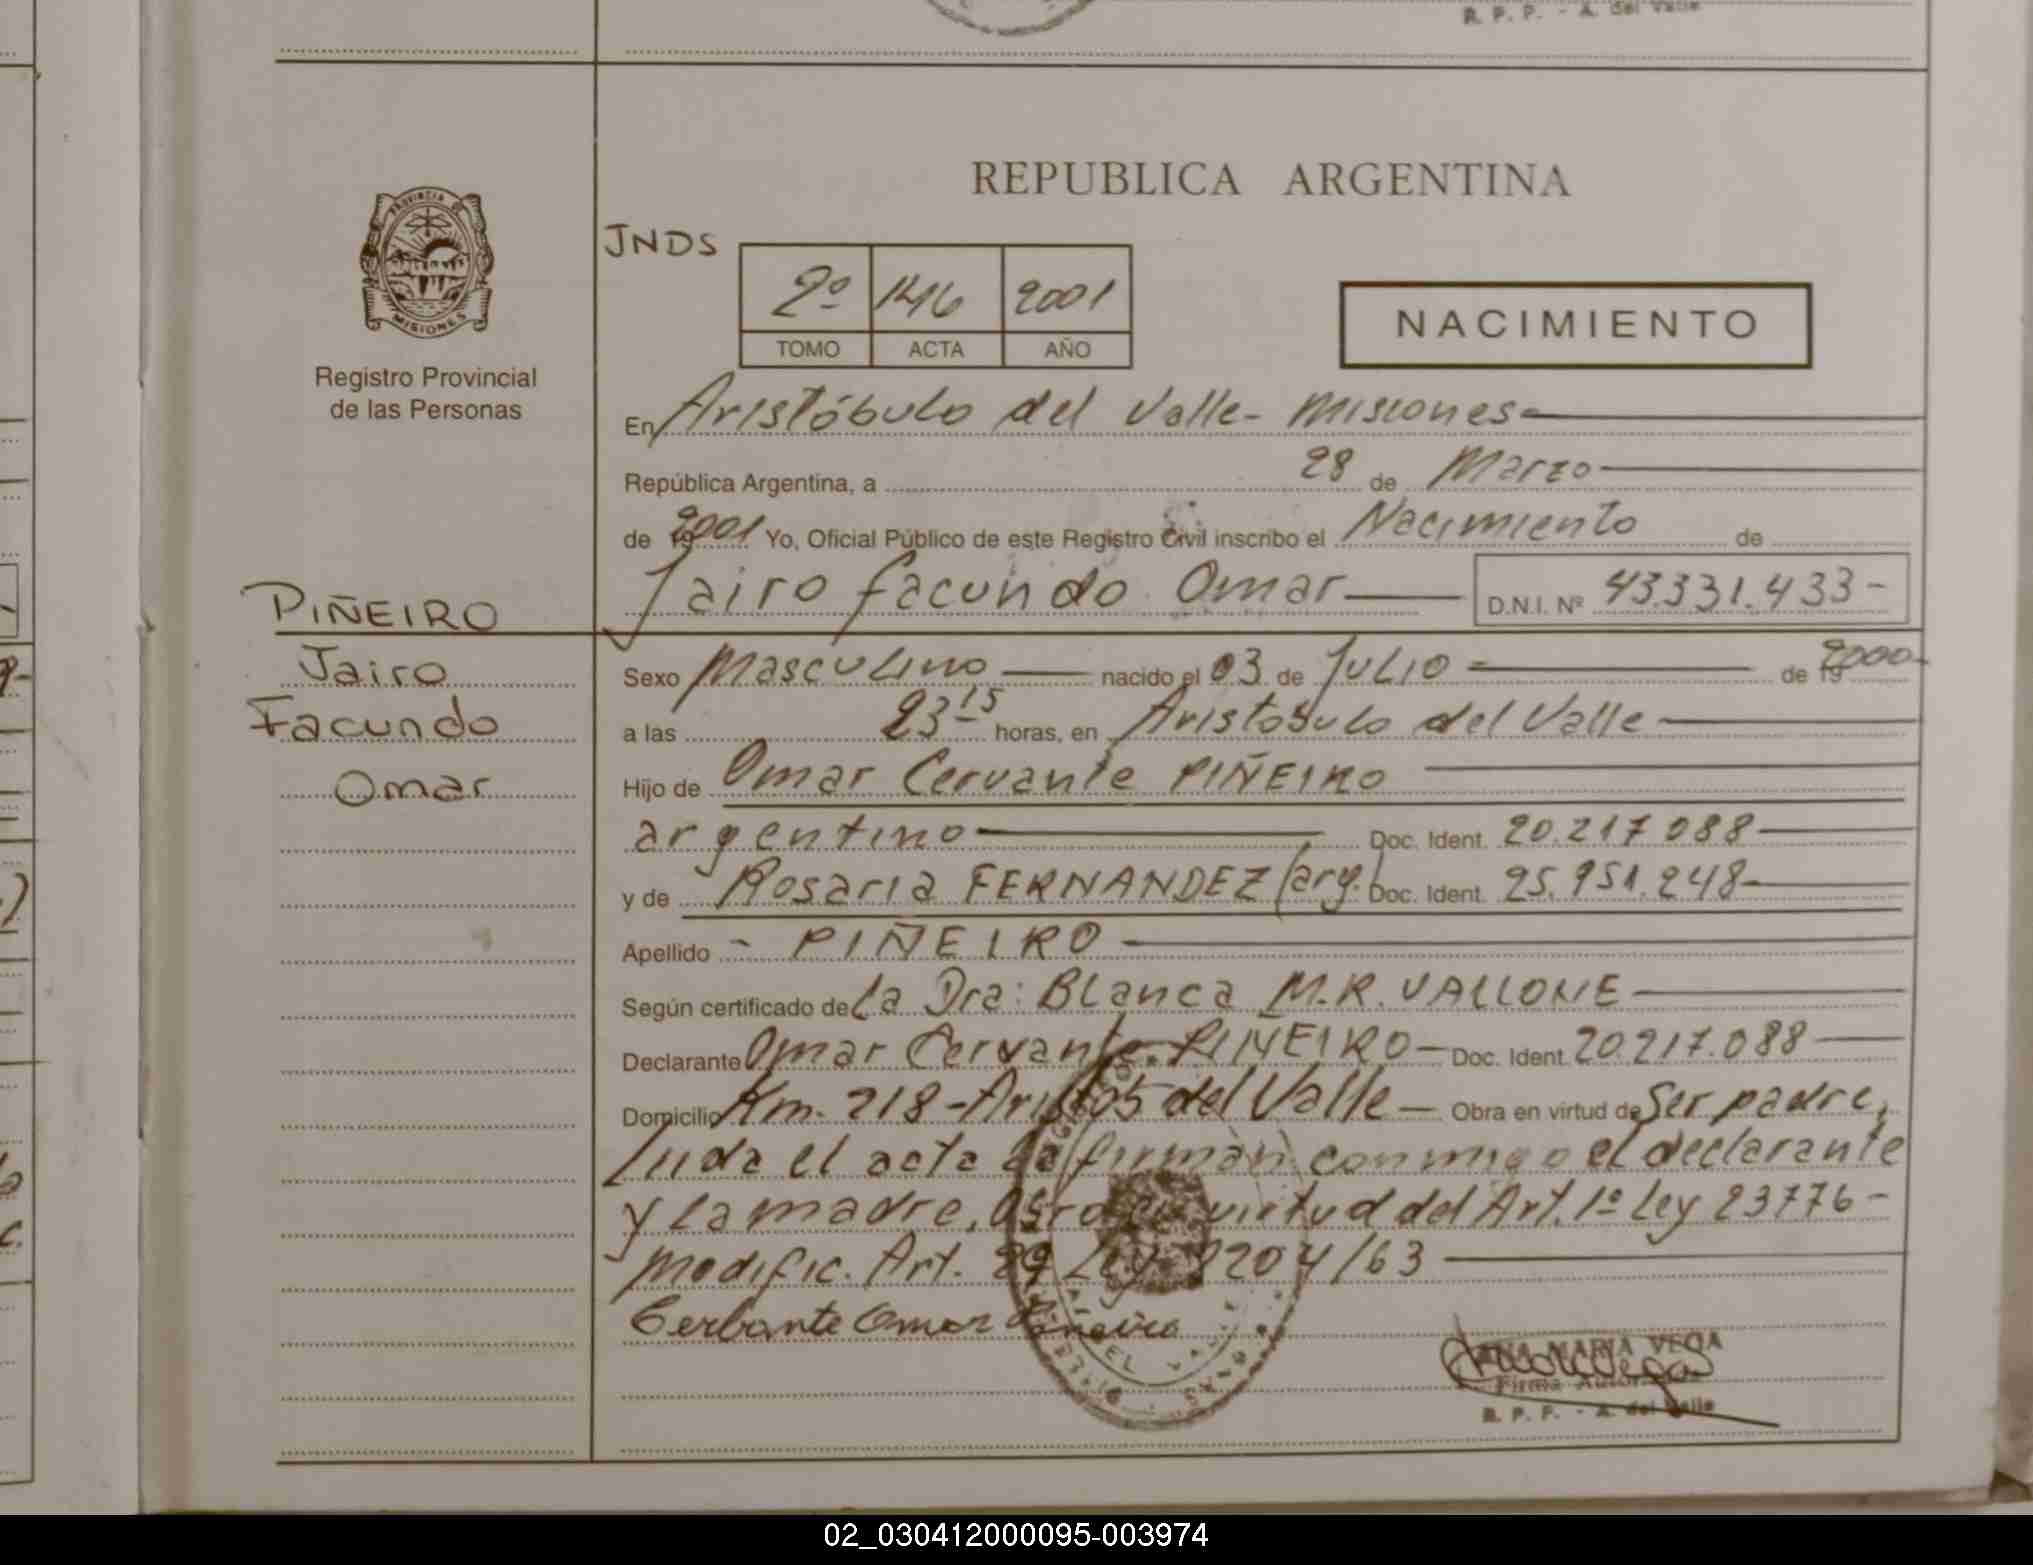 R. P. P. - A. del Valle
REPUBLICA ARGENTINA
PROVINCIA DE
MISIONES
Registro Provincial
de las Personas
JNDS
2º 1416 2001
TOMO ACTA AÑO
NACIMIENTO
En Aristóbulo del Valle - Misiones
República Argentina, a 28 de Marzo
de 2001 Yo, Oficial Público de este Registro Civil inscribo el Nacimiento de
Jairo Facundo Omar D.N.I. Nº 43.331.433-
PIÑEIRO
Jairo
Facundo
Omar
Sexo Masculino nacido el 03 de JULIO de 2000-
a las 23 15 horas, en Aristobulo del Valle
Hijo de Omar Cervante PIÑEIRO
argentino Doc. Ident. 20.217.088
y de Rosaria FERNANDEZ (arg.) Doc. Ident. 25.951.248-
Apellido - PIÑEIRO
Según certificado de La Dra: Blanca M.R. VALLONE
Declarante Omar Cervante PIÑEIRO - Doc. Ident. 20.217.088
Domicilio Km. 218 - Aristób del Valle - Obra en virtud de Ser padre,
Luda el acta la firman conmigo el declarante
y la madre. Obra en virtud del Art. 1º Ley 23776 -
Modific. Art. 29 Ley 8204/63
Cerbante Omar Piñeiro
ANA MARIA VEGA
Firma Autor
R. P. P. - A. del Valle
02_030412000095-003974